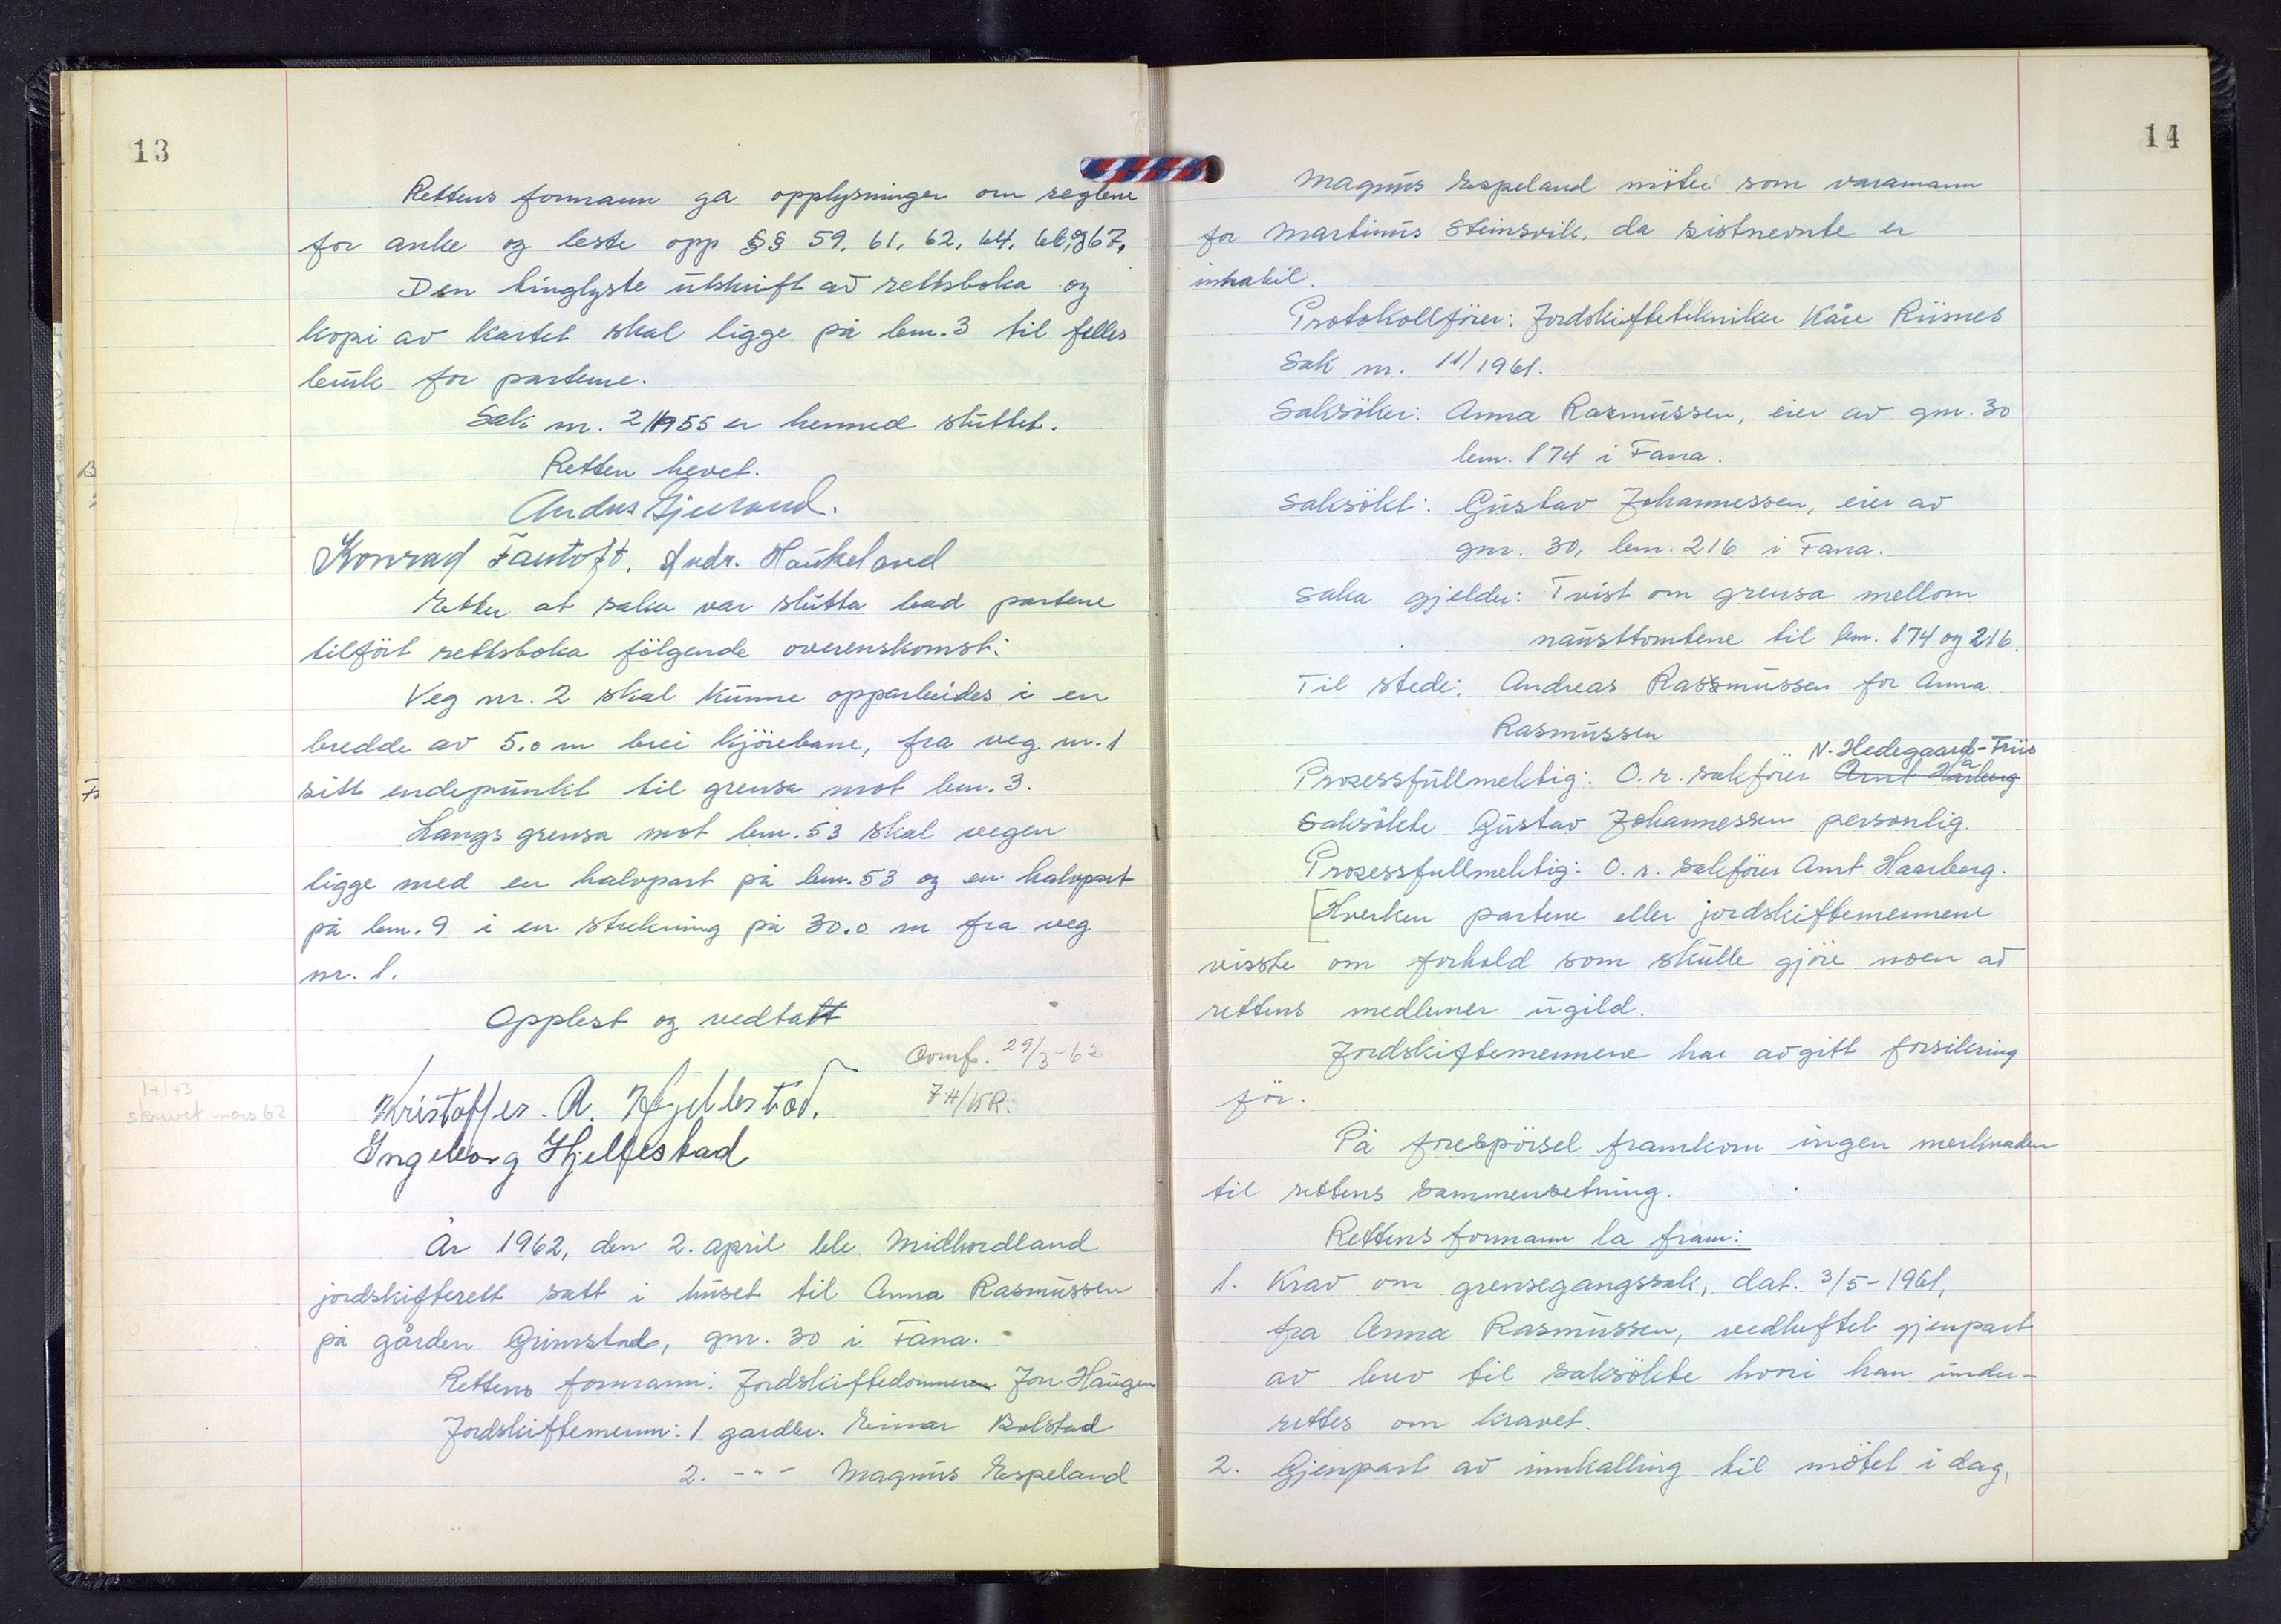 13
Rettens formann ga opplysninger om reglene
for anke og leste opp §§ 59, 61, 62, 64, 66, og 67.
Den tinglyste utskrift av rettsboka og
kopi av kartet skal ligge på bnr. 3 til felles
bruk for partene.
Sak nr. 2/1955 er hermed sluttet.
Retten hevet.
Konrad Fantoft. Andr. Haukeland
Etter at saka var slutta bad partene
tilfört rettsboka fölgende overenskomst:
Veg nr. 2 skal kunne opparbeides i en
bredde av 5.0 m brei kjörebane, fra veg nr. 1
sitt endepunkt til grensa mot bnr. 3.
Langs grensa mot bnr. 53 skal vegen
ligge med en halvpart på bnr. 53 og en halvpart
på bnr. 9 i en strekning på 30.0 m fra veg
nr. 1.
Opplest og vedtatt
Comf. 29/3-62
JH/KR.
skrevet mars 62
Kristoffer. A. Hjellestad.
Ingeborg Hjellestad
År 1962, den 2. april ble Midhordland
jordskifterett satt i huset til Anna Rasmussen
på gården Grimstad, gnr. 30 i Fana.
Rettens formann: Jordskiftedommer Jon Haugen
Jordskiftemenn: 1 gardbr. Einar Bolstad
2. -"- Magnus Espeland
14
Magnus Espeland möter som varamann
for Martinus Steinsvik, da sistnevnte er
inhabil.
Protokollförer: Jordskiftetekniker Kåre Riisnes
Sak nr. 11/1961.
Saksöker: Anna Rasmussen, eier av gnr. 30
bnr. 174 i Fana.
Saksökt: Gustav Johannessen, eier av
gnr. 30, bnr. 216 i Fana.
Saka gjelder: Tvist om grensa mellom
nausttomtene til bnr. 174 og 216.
Til stede: Andreas Rasmussen for Anna
Rasmussen
N. Hedegaard-Friis
Prosessfullmektig: O.r. sakförer Arnt Harberg
Saksökte Gustav Johannessen personlig.
Prosessfullmektig: O.r. sakförer Arnt Haarberg.
[Hverken partene eller jordskiftemennene
visste om forhold som skulle gjöre noen av
rettens medlemer ugild.
Jordskiftemennene har avgitt forsikring
för.
På forespörsel framkom ingen merknader
til rettens sammensetning.
Rettens formann la fram:
1. Krav om grensegangssak, dat. 3/5-1961,
fra Anna Rasmussen, vedheftet gjenpart
av brev til saksökte hvori han under-
rettes om kravet.
2. Gjenpart av innkalling til mötet i dag,